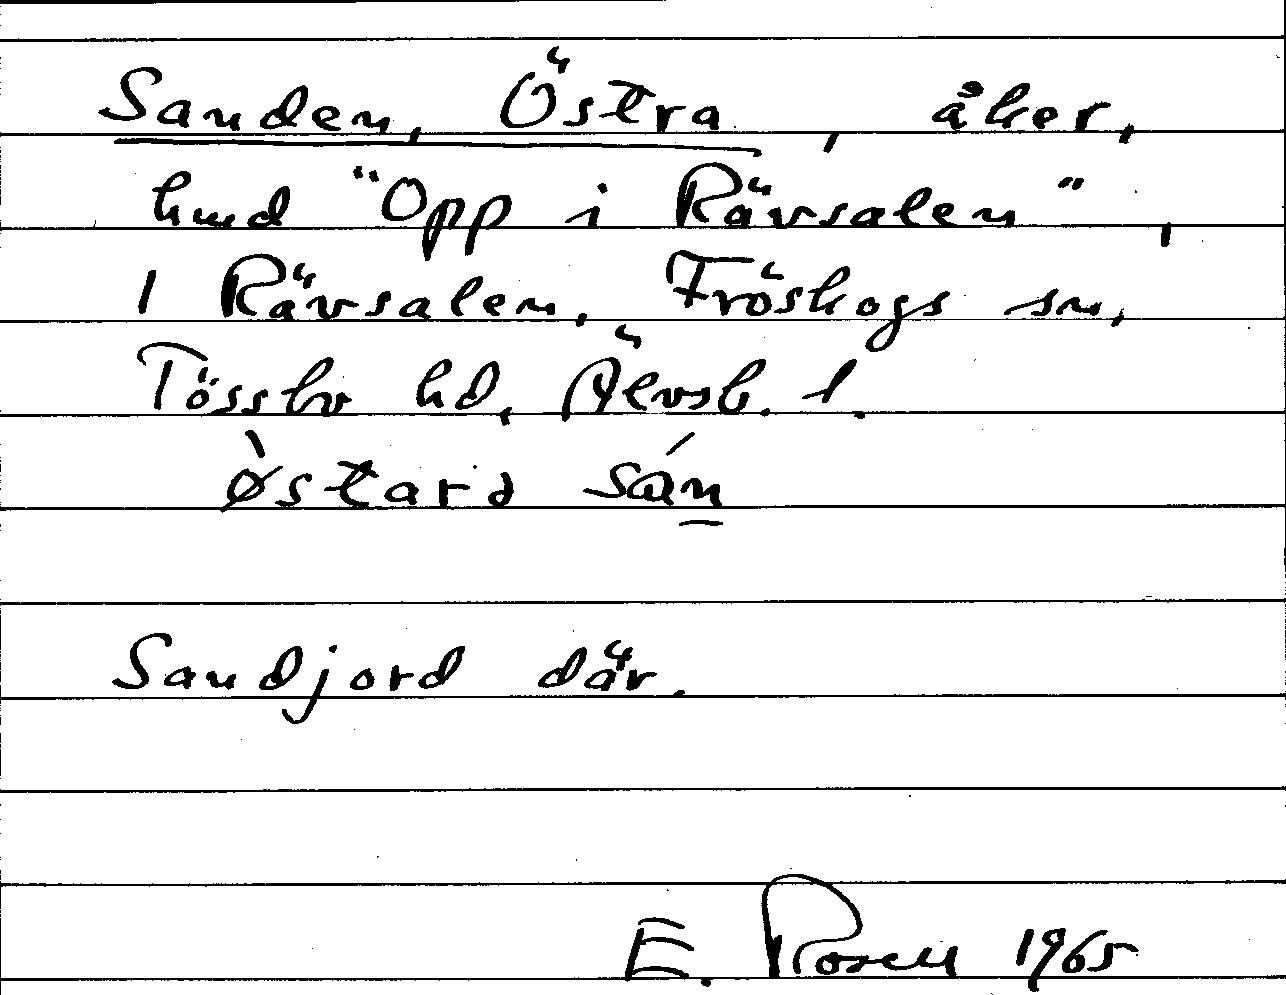 Sanden, Östra, åker,
hmd "Opp i Rävsalen",
1 Rävsalen, Fröskogs sn,
Tössbo hd, Älvsb. l.
Sandjord där.
E. Rosell 1965